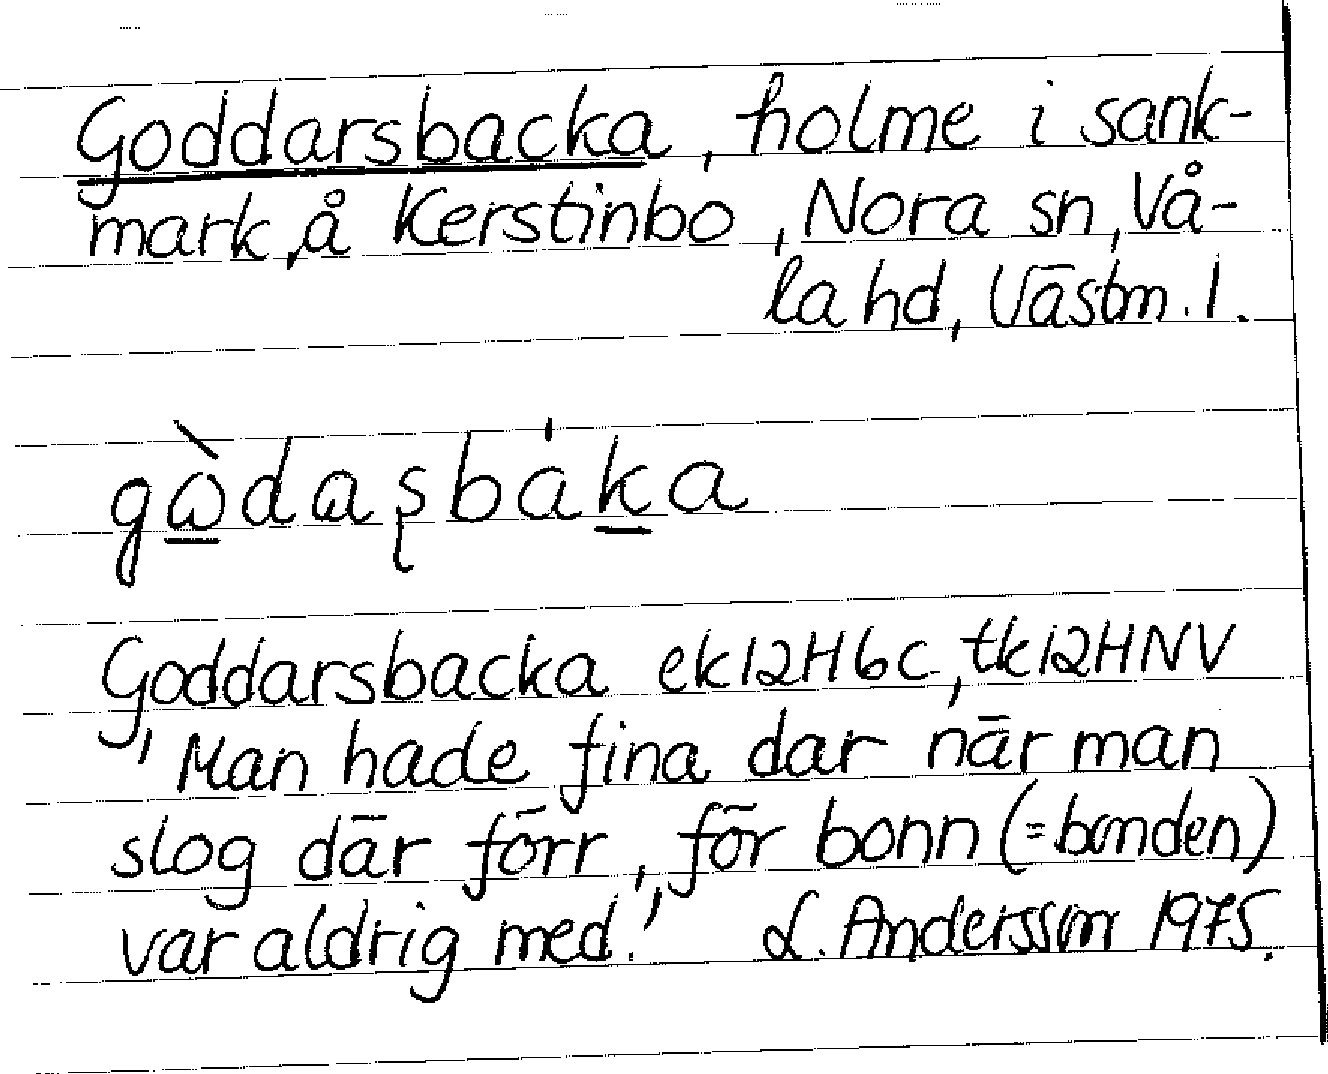 Goddarsbacka, holme i sank-
mark, å Kerstinbo, Nora sn, Vå-
la hd, Västm. l.
gὼdaʂbáka
Goddarsbacka ek12H6c, tk12HNV
'Man hade fina dar när man
slog där förr, för bonn (=bonden)
var aldrig med.' L. Andersson 1975.